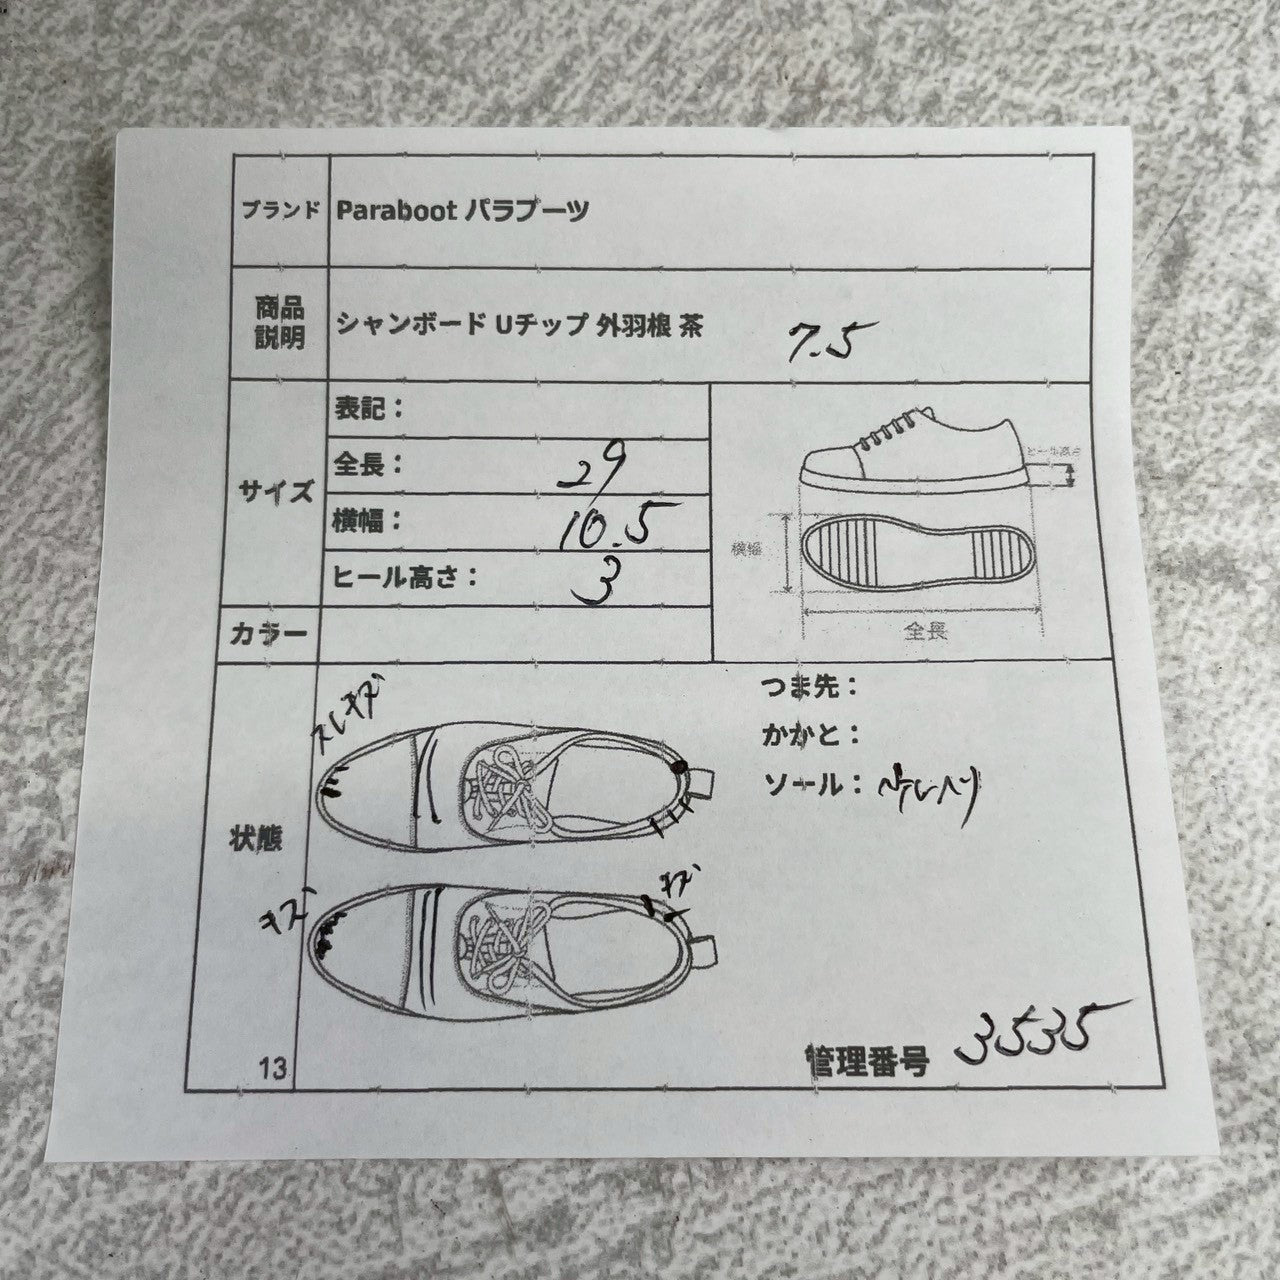 ブランド Paraboot パラブーツ
商品説明 シャンボード Uチップ 外羽根 茶 7.5
サイズ
表記：
全長： 29
横幅： 10.5
ヒール高さ： 3
ヒール高さ
横幅
全長
カラー
状態
スレキズ
キズ
キズ
つま先：
かかと：
ソール：
管理番号 3535
13